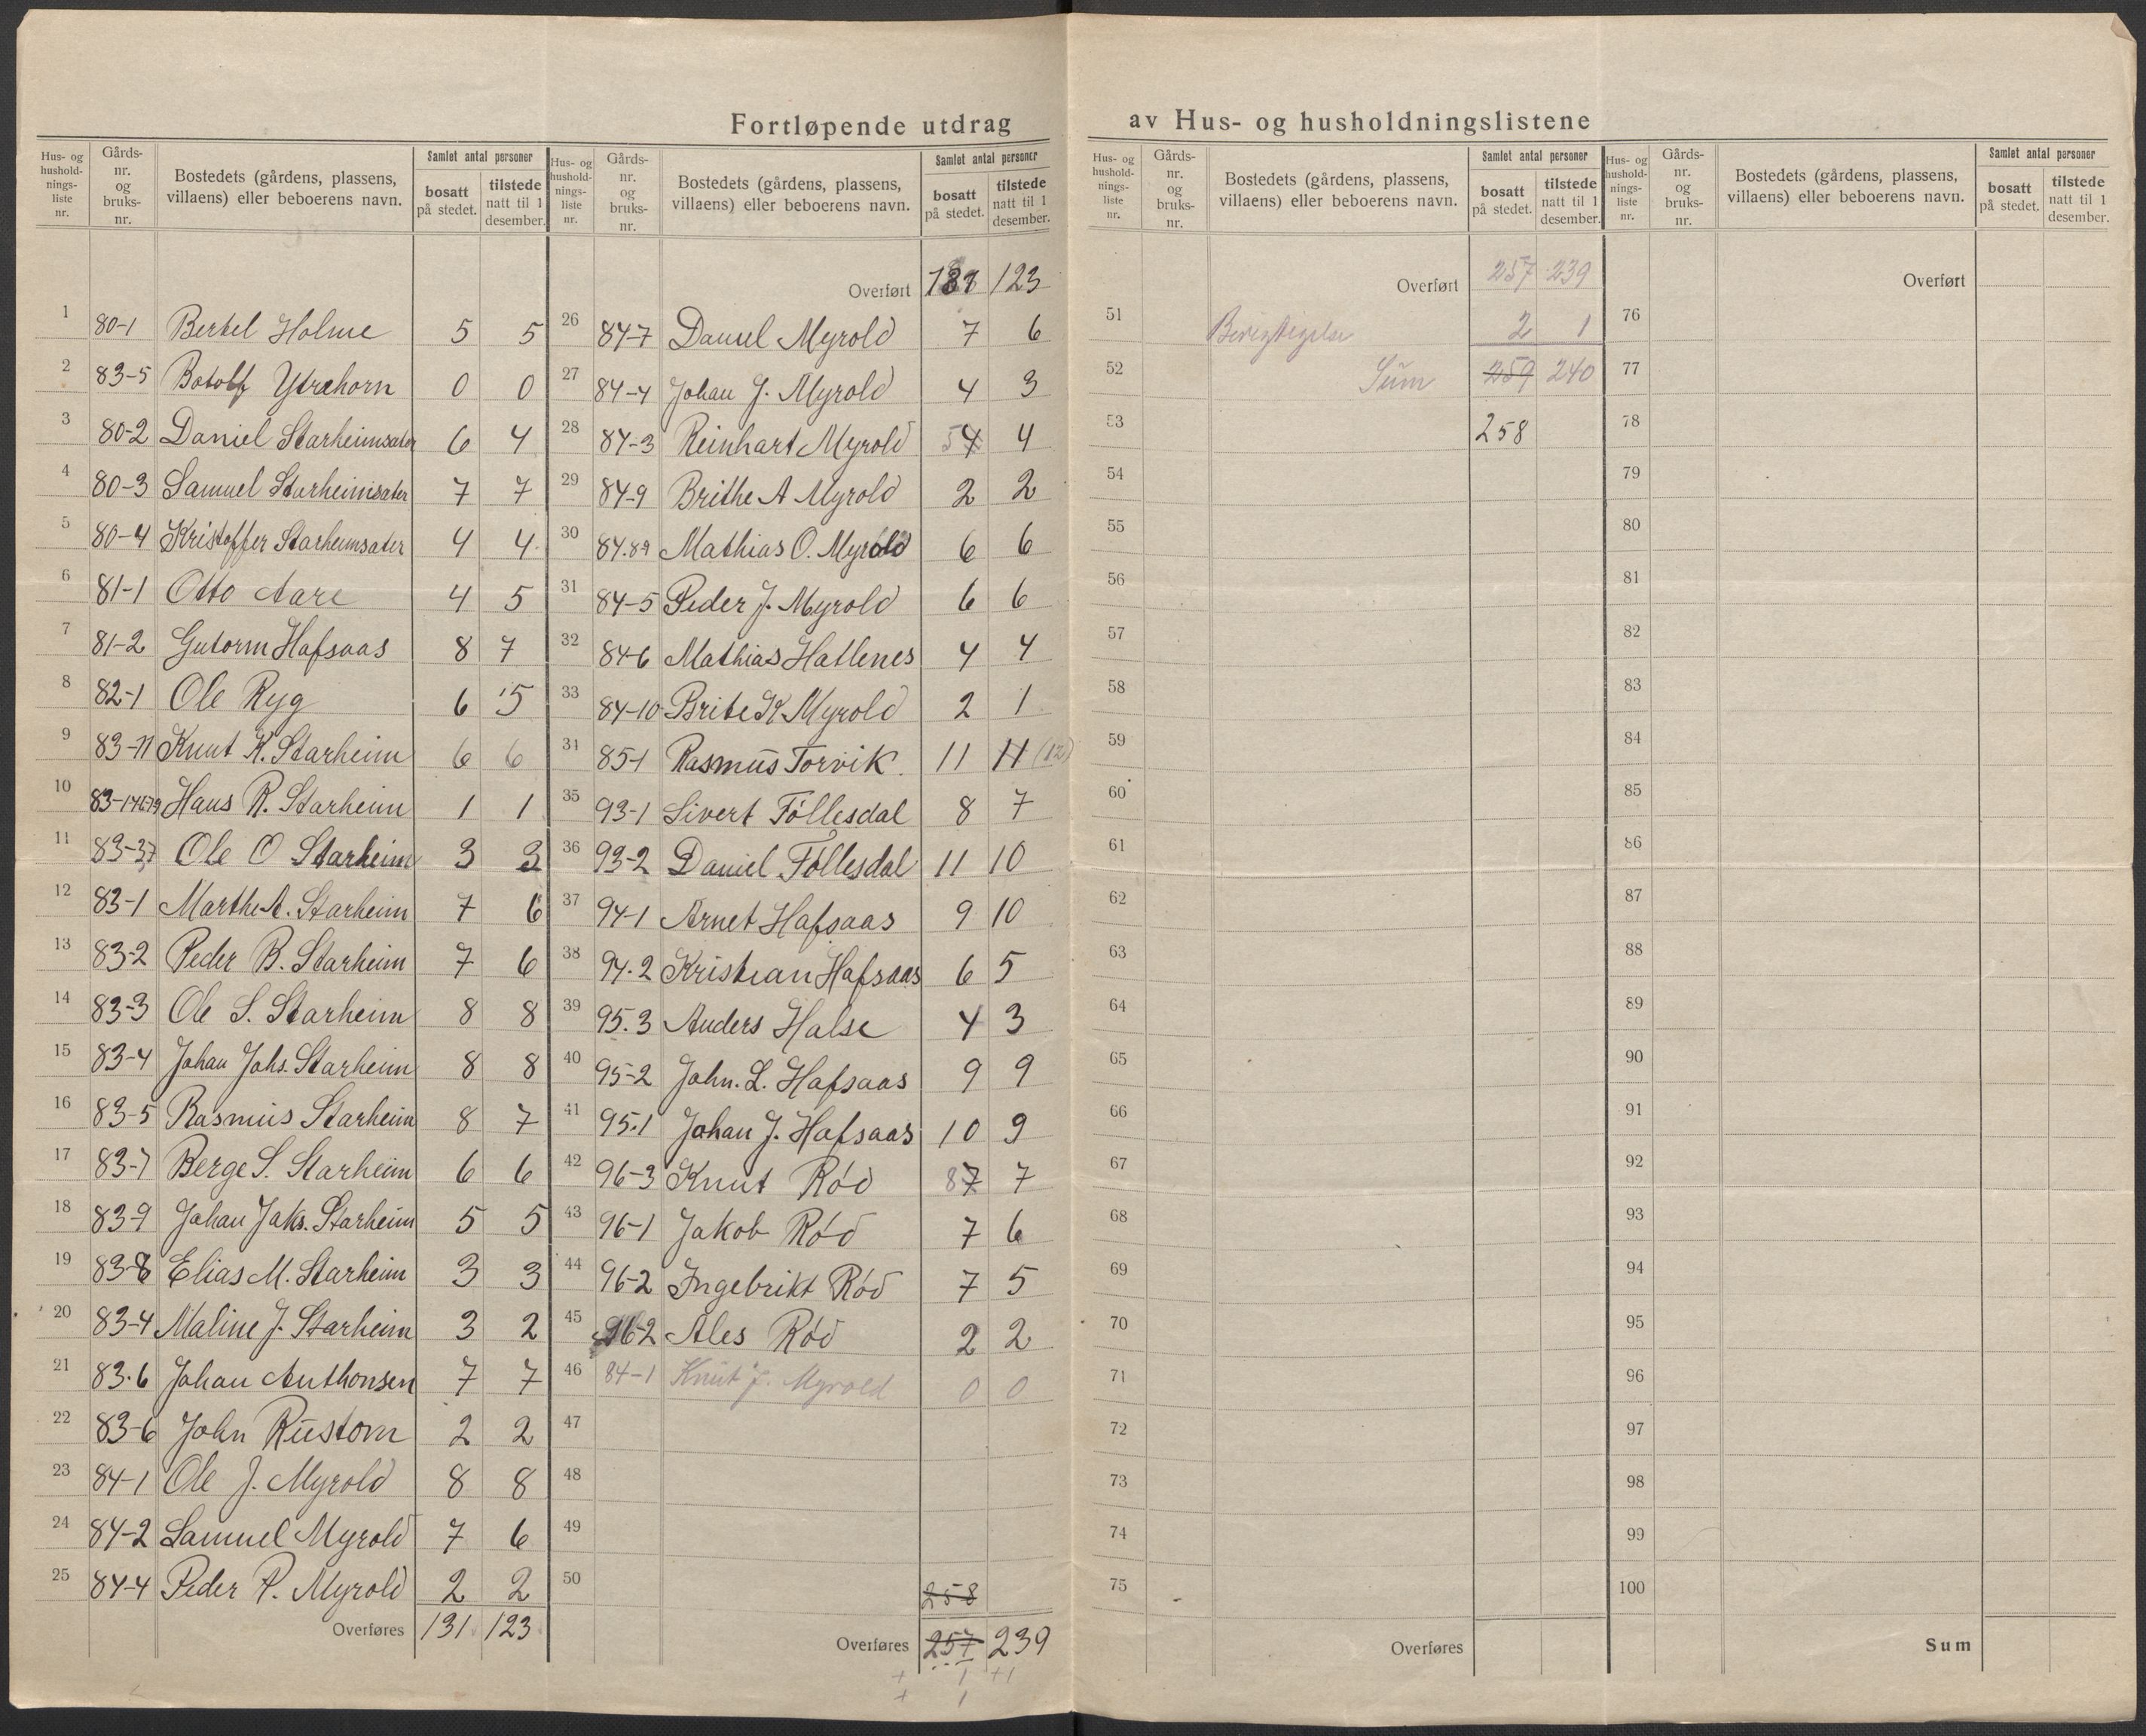 Fortløpende utdrag av Hus- og husholdningslistene
Hus- og hushold-nings-liste nr. Gårds-nr. og bruks-nr. Bostedets (gårdens, plassens, villaens) eller beboerens navn. Samlet antal personer bosatt på stedet. tilstede natt til 1 desember.
1 80-1 Bertel Holme 5 5
2 83-5 Botolf Ytrehorn 0 0
3 80-2 Daniel Starheimsater 6 4
4 80-3 Samuel Starheimsater 7 7
5 80-4 Kristoffer Starheimsater 4 4
6 81-1 Otto Aare 4 5
7 81-2 Gutorm Hafsaas 8 7
8 82-1 Ole Ryg 6 5
9 83-11 Knut K. Starheim 6 6
10 Hans R. Starheim 1 1
11 83-37 Ole O Starheim 3 3
12 83-1 Marthe A. Starheim 7 6
13 83-2 Peder B. Starheim 7 6
14 83-3 Ole S. Starheim 8 8
15 83-4 Johan Johs. Starheim 8 8
16 83-5 Rasmus Starheim 8 7
17 83-7 Berge S. Starheim 6 6
18 83-9 Johan Jaks. Starheim 5 5
19 83-8 Elias M. Starheim 3 3
20 83-4 Maline J. Starheim 3 2
21 83.6 Johan Anthonsen 7 7
22 83-6 John Rustom 2 2
23 84-1 Ole J. Myrold 8 8
24 84-2 Samuel Myrold 7 6
25 84-4 Peder P. Myrold 2 2
Overføres 131 123
Hus- og hushold-nings-liste nr. Gårds-nr. og bruks-nr. Bostedets (gårdens, plassens, villaens) eller beboerens navn. Samlet antal personer bosatt på stedet. tilstede natt til 1 desember.
Overført 131 123
26 84-7 Daniel Myrold 7 6
27 84-4 Johan J. Myrold 4 3
28 84-3 Reinhart Myrold 5 4 4
29 84-9 Brithe A Myrold 2 2
30 84.89 Mathias O. Myrold 6 6
31 84-5 Peder J. Myrold 6 6
32 84-6 Mathias Hatlenes 4 4
33 84-10 Brite K Myrold 2 1
34 85-1 Rasmus Torvik. 11 11 (12)
35 93-1 Sivert Føllesdal 8 7
36 93-2 Daniel Føllesdal 11 10
37 94-1 Arnet Hafsaas 9 10
38 94.2 Kristian Hafsaas 6 5
39 95.3 Anders Halse 4 3
40 95-2 John. L. Hafsaas 9 9
41 95.1 Johan J. Hafsaas 10 9
42 96-3 Knut Rød 8 7 7
43 96-1 Jakob Rød 7 6
44 96-2 Ingebrikt Rød 7 5
45 96-2 Ales Rød 2 2
46 84-1 Knut J. Myrold 0 0
47
48
49
50
258
Overføres 257 239
+ 1 +1
+ 1
Hus- og hushold-nings-liste nr. Gårds-nr. og bruks-nr. Bostedets (gårdens, plassens, villaens) eller beboerens navn. Samlet antal personer bosatt på stedet. tilstede natt til 1 desember.
Overført 257 239
51 Berigtigelse 2 1
52 Sum 259 240
53 258
54
55
56
57
58
59
60
61
62
63
64
65
66
67
68
69
70
71
72
73
74
75
Overføres
Hus- og hushold-nings-liste nr. Gårds-nr. og bruks-nr. Bostedets (gårdens, plassens, villaens) eller beboerens navn. Samlet antal personer bosatt på stedet. tilstede natt til 1 desember.
Overført
76
77
78
79
80
81
82
83
84
85
86
87
88
89
90
91
92
93
94
95
96
97
98
99
100
Sum